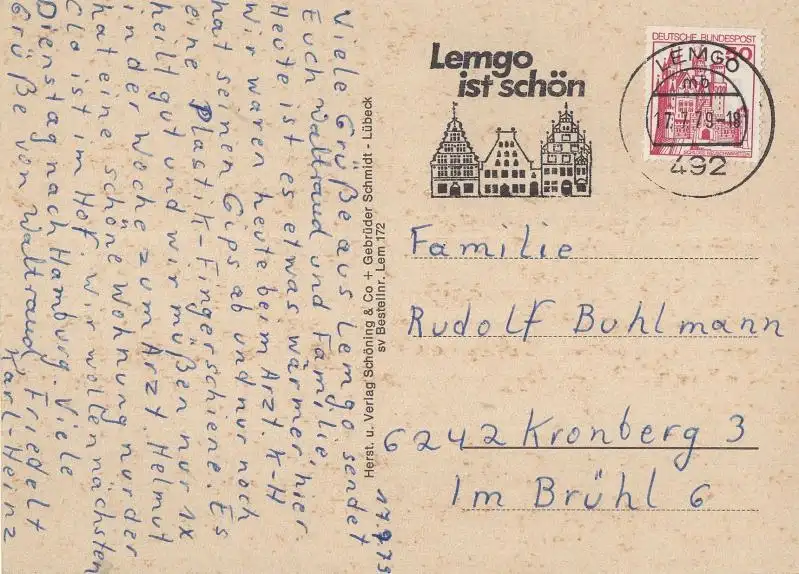 Viele Grüße aus Lemgo sendet
Euch Waltraud und Familie,
Heute ist es etwas wärmer, hier
wir waren heute beim Arzt. K-H
hat seinen Gips ab und nur noch
eine Plastik-Fingerschiene. Es
heilt gut und wir müßen nur 1x
in der Woche zum Arzt. Helmut
hat eine schöne Wohnung nur der
Clo ist im Hof. Wir wollen nächsten
Dienstag nach Hamburg. Viele
Grüße von Waltraud, Friedelt
Karl-Heinz
17.7.79
Herst. u. Verlag Schöning & Co + Gebrüder Schmidt - Lübeck
sv Bestellnr. Lem 172
Lemgo
ist schön
DEUTSCHE BUNDESPOST
50
LEMGO
mb
17.7.79-18
492
Familie
Rudolf Buhlmann
6242 Kronberg 3
Im Brühl 6